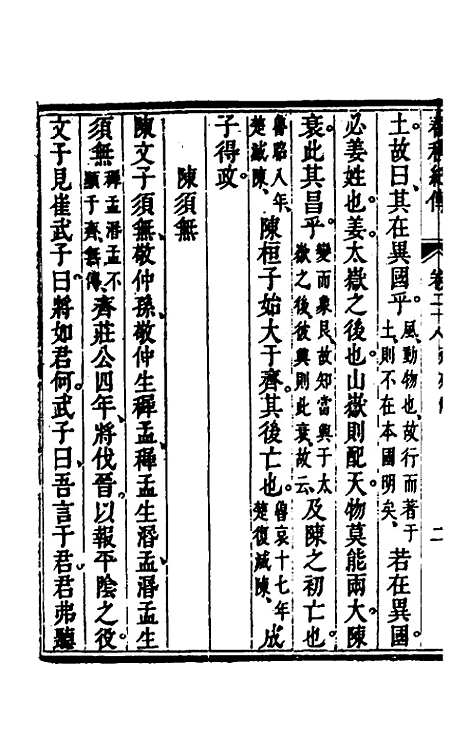 卷二十八
二
土故曰其在異國乎風動物也故行而著于土則不在本國明矣若在異國
必姜姓也姜太嶽之後也山嶽則配天物莫能兩大陳
衰此其昌乎變而象艮故知當興于太嶽之後彼興則此衰故云及陳之初亡也
魯昭八年楚滅陳陳桓子始大于齊其後亡也魯哀十七年楚復滅陳成
子得政
陳須無
陳文子須無敬仲孫敬仲生穉孟穉孟生湣孟湣孟生
須無穉孟湣孟不顯于齊無傳齊莊公四年將伐晉以報平陰之役
文子見崔武子曰將如君何武子曰吾言于君君弗聽